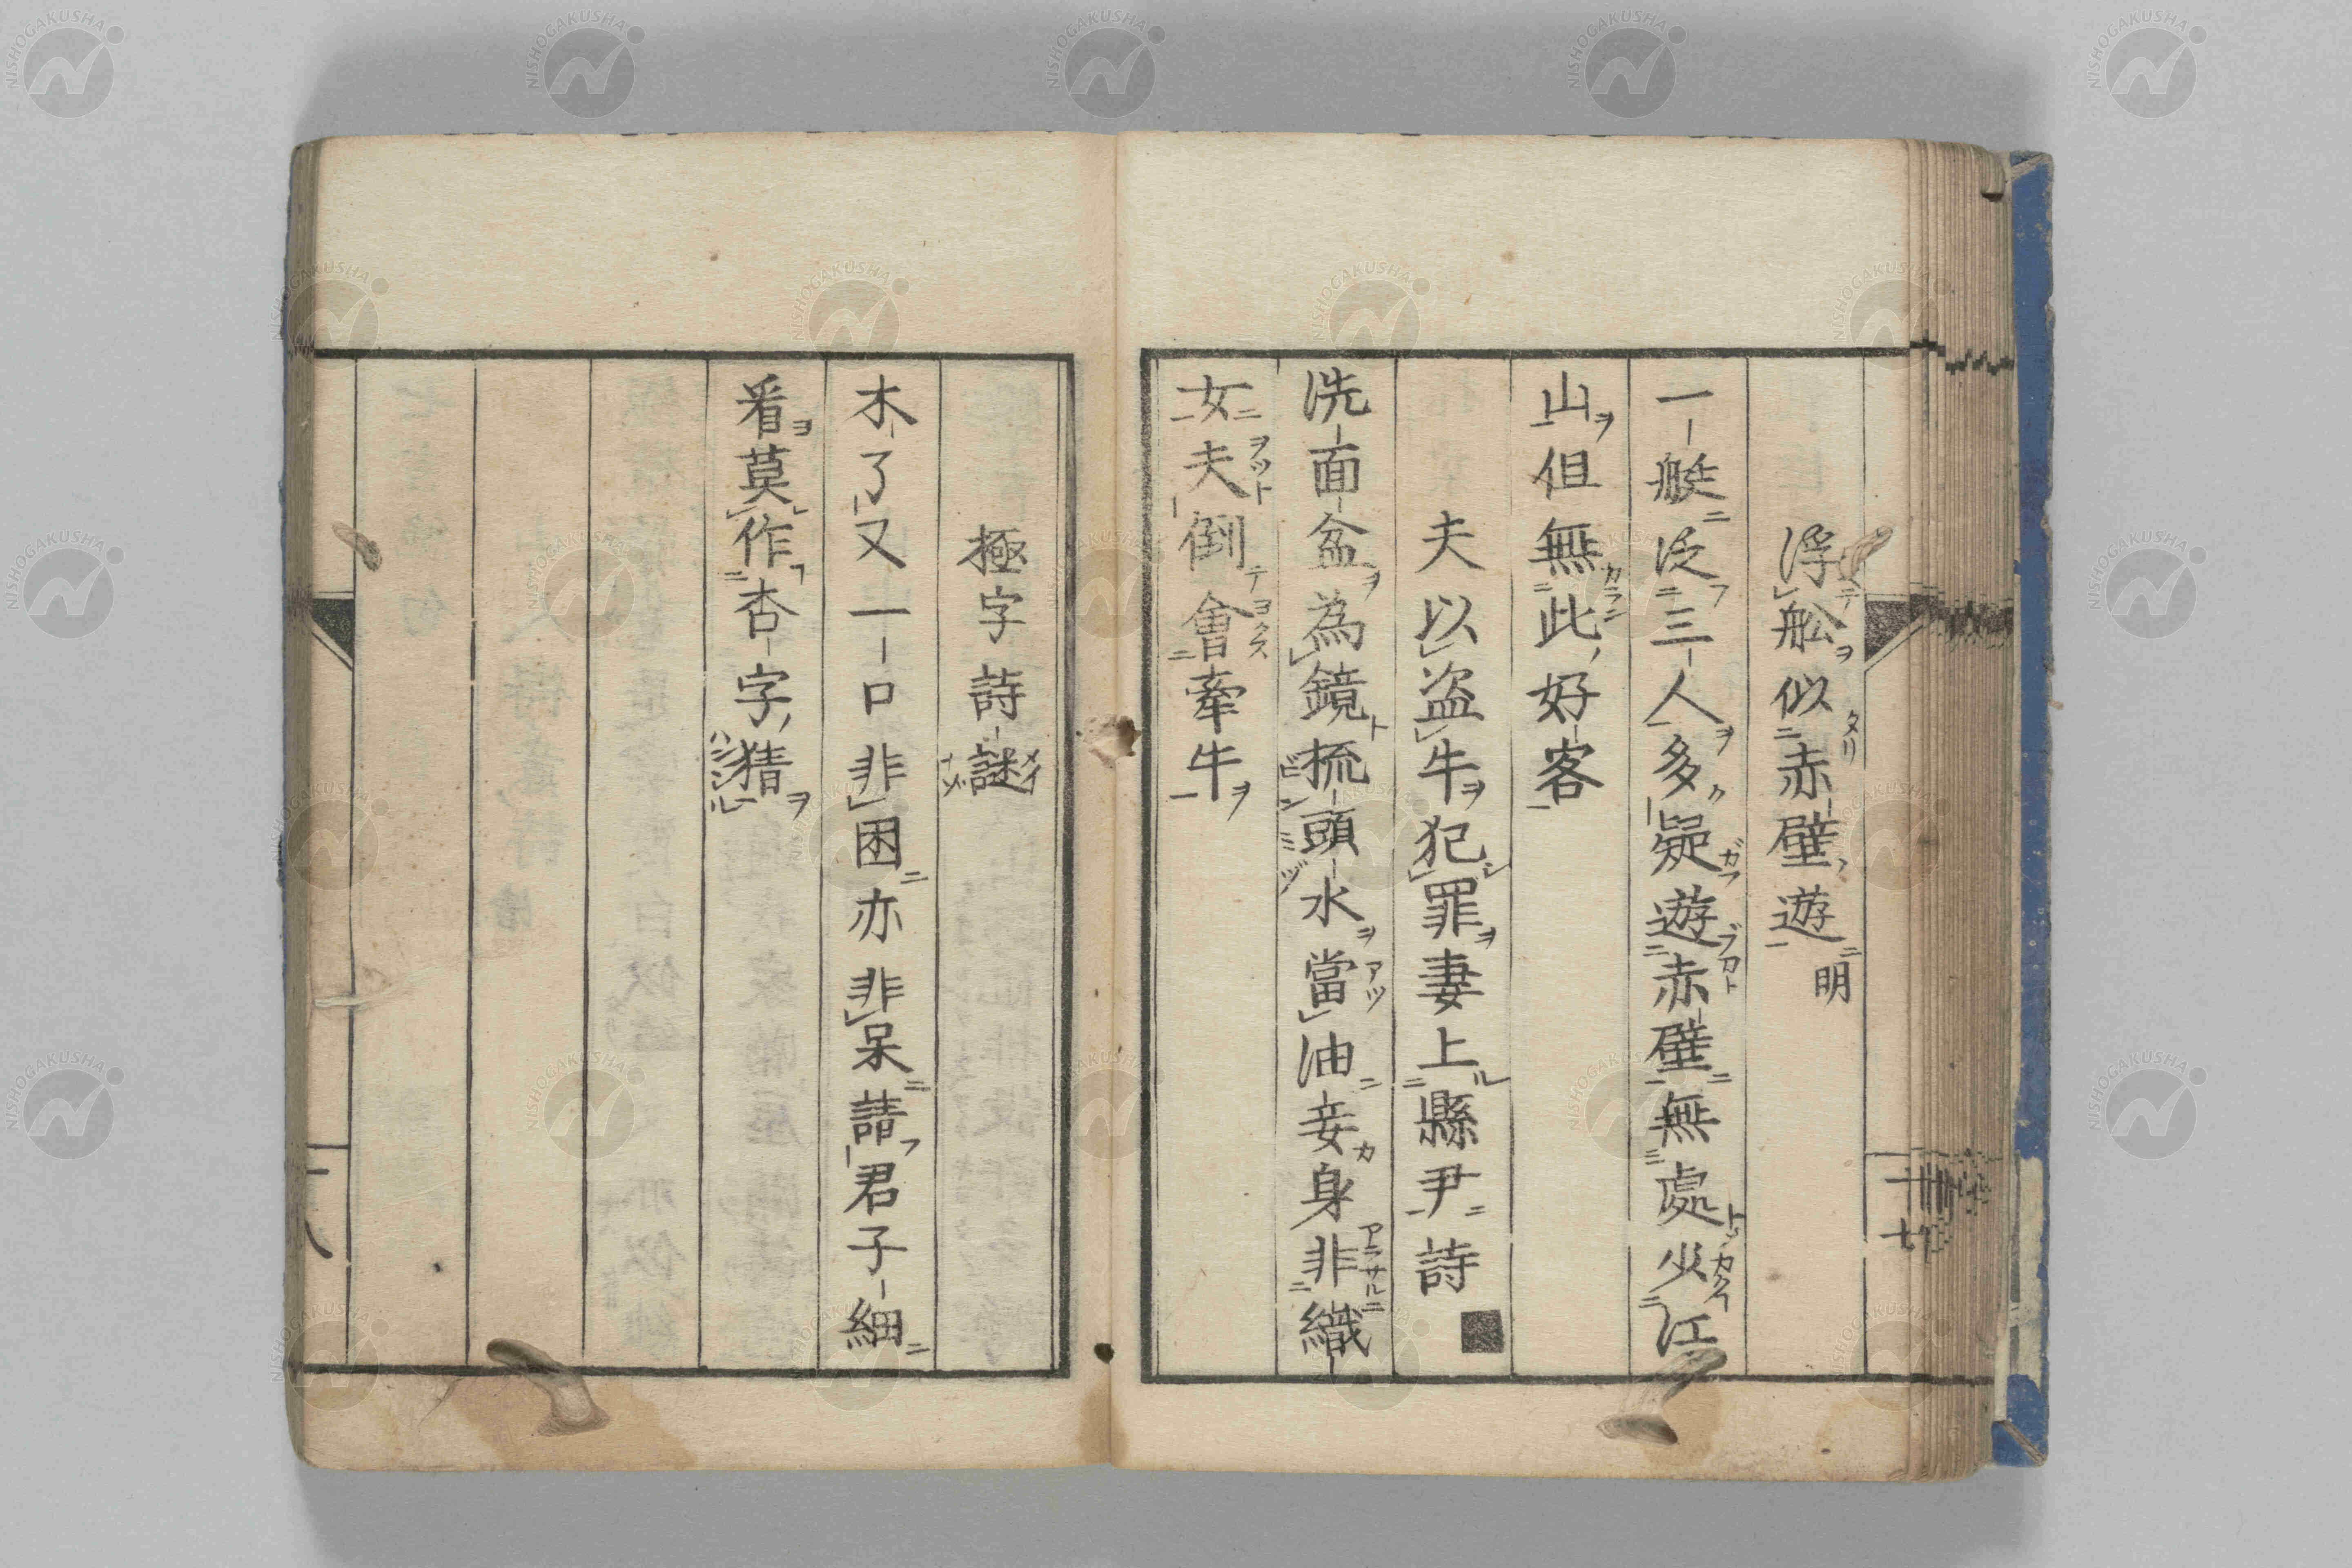 浮舩似赤壁遊 明
一艇泛三人多疑遊赤壁無處少江
山但無此好客
夫以盗牛犯罪妻上縣尹詩
洗面盆為鏡梳頭水當油妾身非織
女夫倒會牽牛
極字詩謎
木了又一口非困亦非呆請君子細
看莫作杏字猜